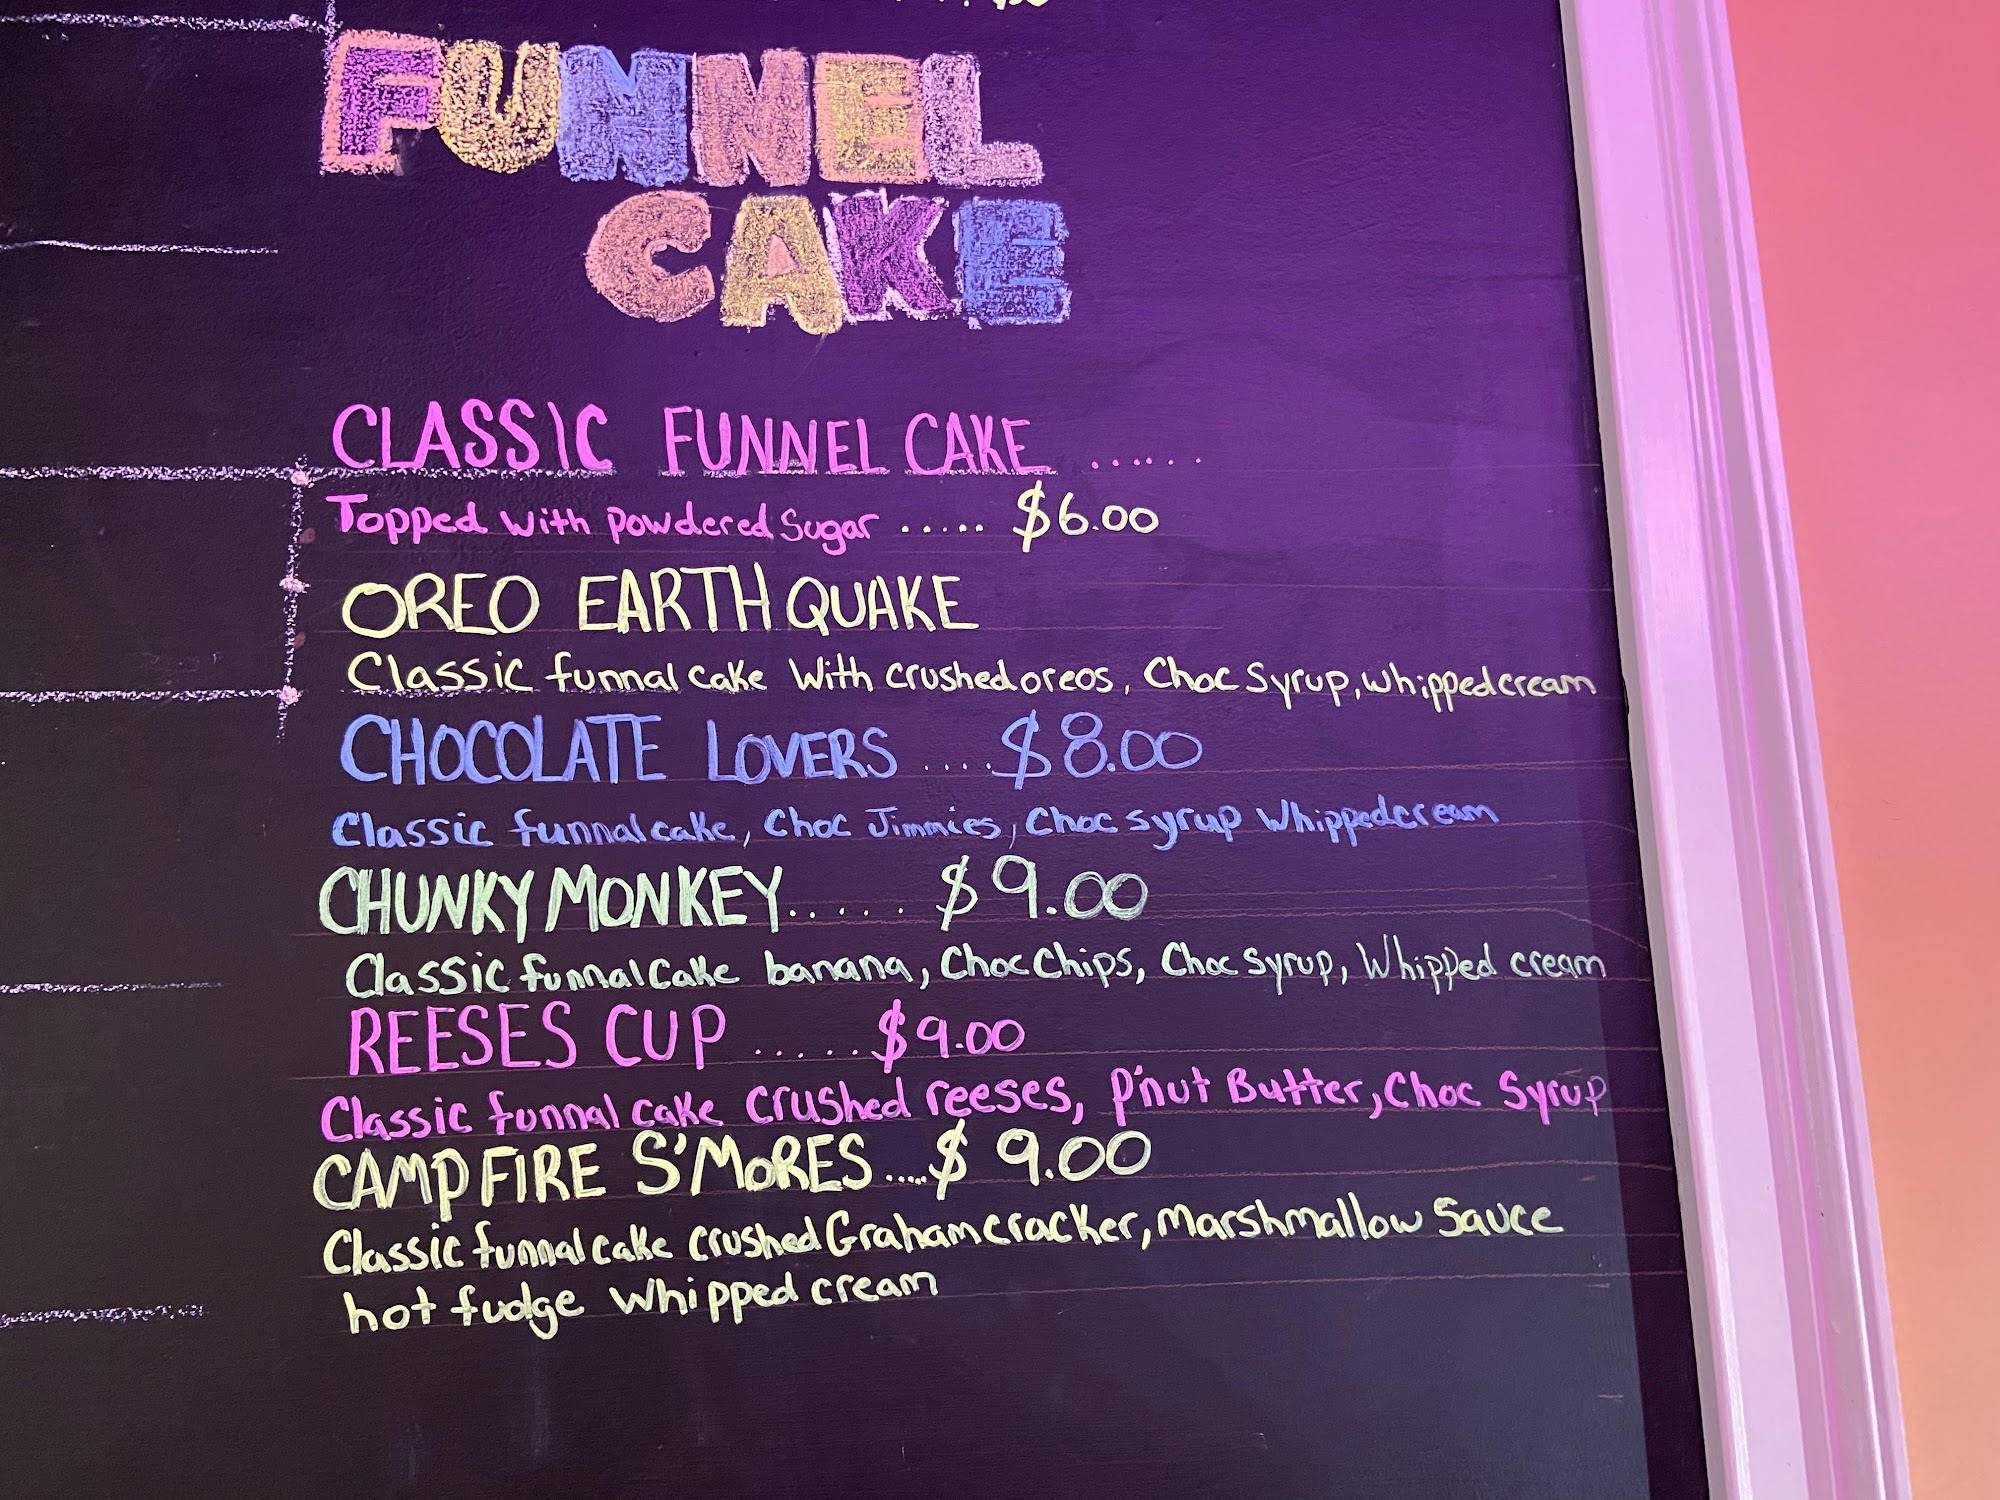 FUNNEL
CAKE
CLASSIC FUNNEL CAKE ......
Topped with powdered Sugar ..... $6.00
OREO EARTHQUAKE
Classic funnal cake With crushed oreos, Choc Syrup, whipped cream
CHOCOLATE LOVERS ....$8.00
Classic funnal cake, Choc Jimmies, Choc syrup Whipped cream
CHUNKY MONKEY...... $9.00
Classic funnal Cake banana, Choc Chips, Choc Syrup, Whipped cream
REESES CUP ......$9.00
Classic funnal cake crushed reeses, P'nut Butter, Choc Syrup
CAMPFIRE S'MORES.....$9.00
Classic funnal cake crushed Graham cracker, Marshmallow Sauce
hot fudge Whipped cream